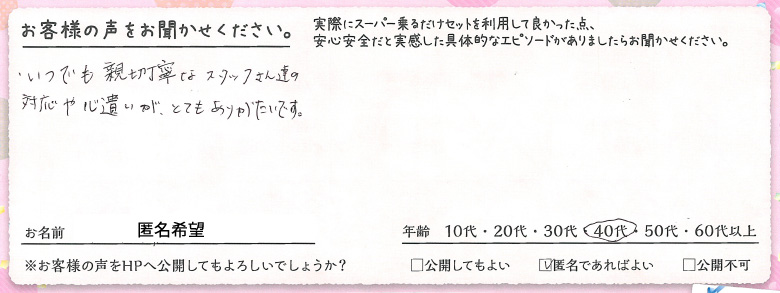 お客様の声をお聞かせください。
実際にスーパー乗るだけセットを利用して良かった点、
安心安全だと実感した具体的なエピソードがありましたらお聞かせください。
・いつでも親切丁寧なスタッフさん達の
対応や心遣いが、とてもありがたいです。
お名前 匿名希望
年齢 10代・20代・30代・40代・50代・60代以上
※お客様の声をHPへ公開してもよろしいでしょうか？ □公開してもよい ☑匿名であればよい □公開不可